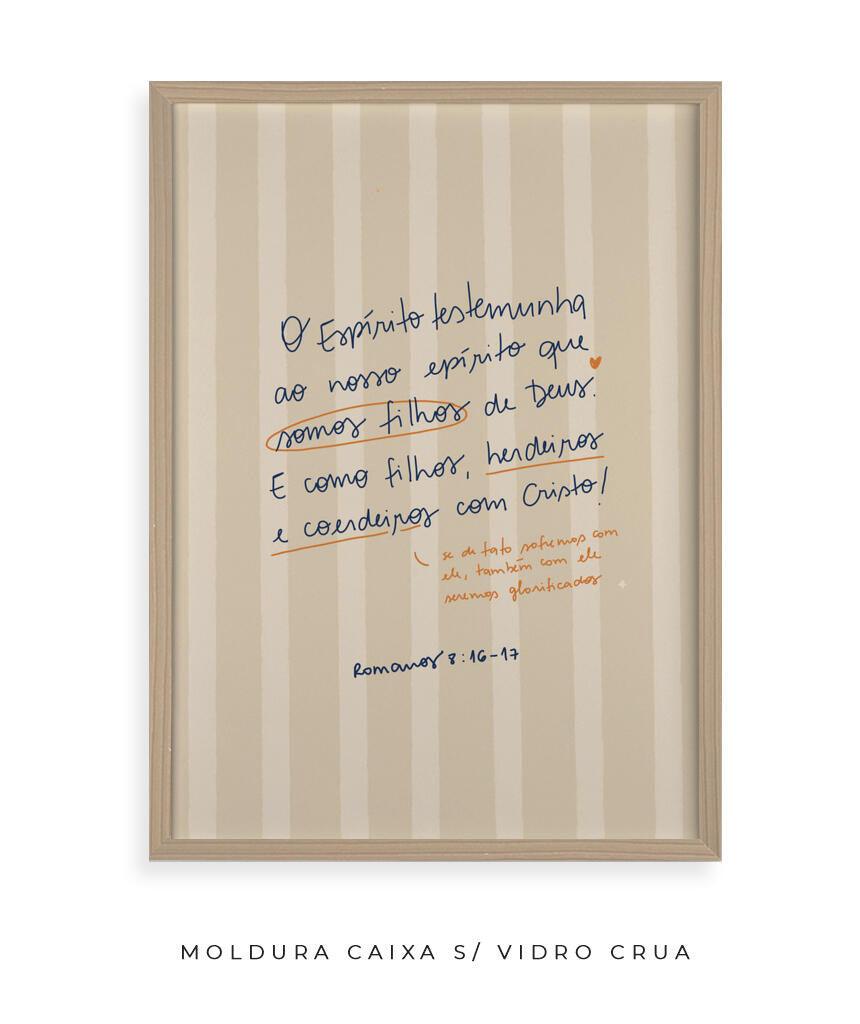 O Espírito testemunha
ao nosso epírito que
somos filhos de Deus.
E como filhos, herdeiros
e coerdeiros com Cristo!
se de fato sofremos com
ele, também com ele
seremos glorificados
Romanos 8:16-17
MOLDURA CAIXA S/ VIDRO CRUA